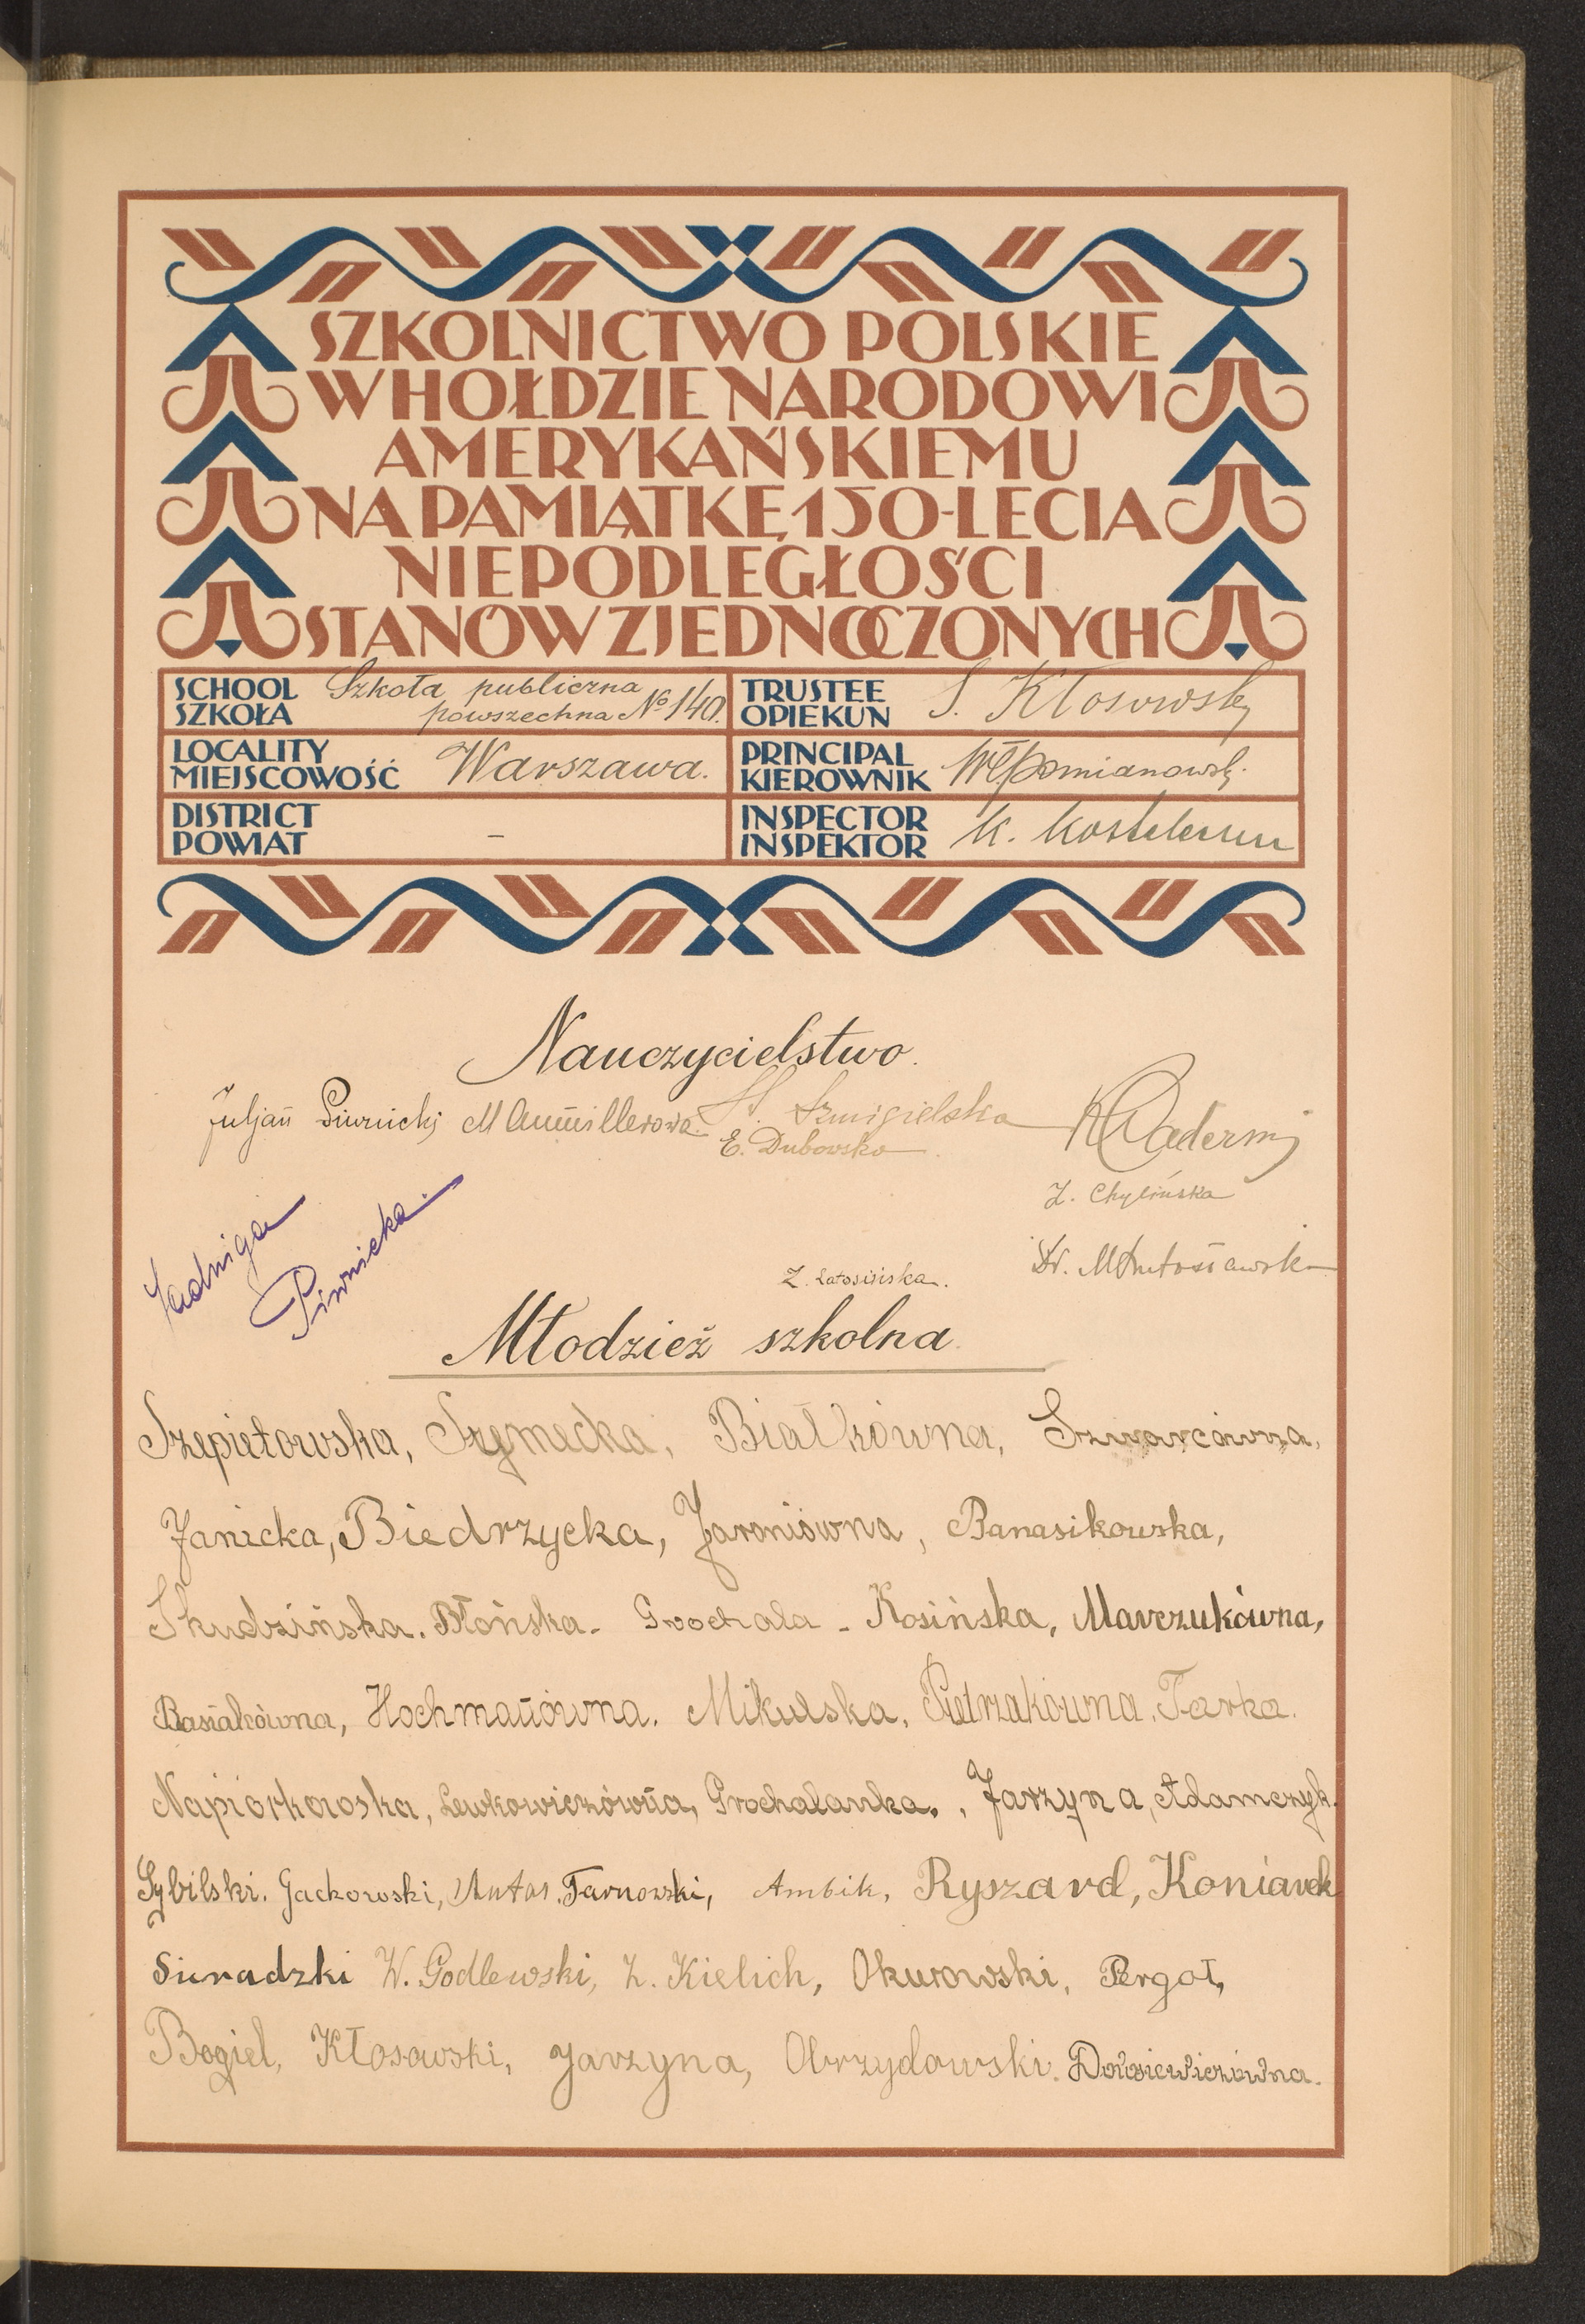 SZKOLNICTWO POLSKIE
W HOŁDZIE NARODOWI
AMERYKAŃSKIEMU
NA PAMIĄTKĘ 150-LECIA
NIEPODLEGŁOŚCI
STANÓW ZJEDNOCZONYCH
SCHOOL
SZKOŁA
Szkoła publiczna
powszechna № 140.
TRUSTEE
OPIEKUN
S. Kłosowski
LOCALITY
MIEJSCOWOŚĆ
Warszawa.
PRINCIPAL
KIEROWNIK
Wł Pomianowski
DISTRICT
POWIAT
–
INSPECTOR
INSPEKTOR
K.
Nauczycielstwo.
Juljan Piwnicki M Anmillerowa St. Szmigielska
E. Dubowska
Z. Chylińska
Jadwiga
Piwnicka.
Dr. M Lutosławska
Z. Latosińska.
Młodzież szkolna.
Szepietowska, Szymecka, Białkówna, Szwarcówna,
Janicka, Biedrzycka, Jaroniówna, Banasikowska,
Skudzińska. Błońska - Grochala - Kosińska, Marczukówna,
Basiakówna, Hochmanówna. Mikulska, Pietrzakówna, Tarka.
Napiórkowska, Lewkowiczówna, Grochalanka., Jarzyna, Adamczyk.
Sybilski. Gackowski, Antos. Tarnowski, Ambik, Ryszard, Koniarek
Sieradzki W. Godlewski, Z. Kielich, Okurowski, Pergoł,
Bogiel, Kłosowski, Jarzyna, Obrzydowski.